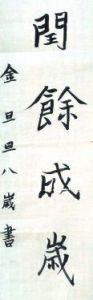 閏餘成歲
金旦旦八歲書